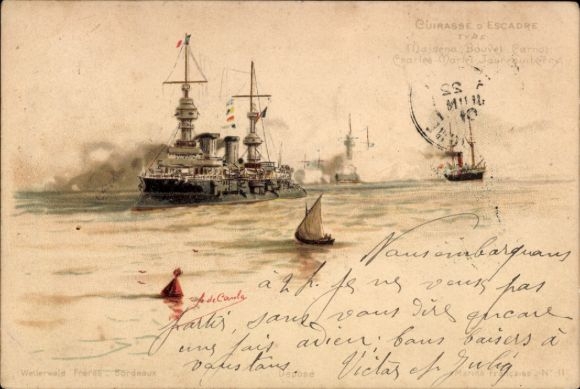 CUIRASSÉ D'ESCADRE
TYPE
Masséna, Bouvet, Carnot
Charles Martel, Jauréguiberry
22
JUIN
01
Nous embarquons
à 2 h. je ne veux pas
partir, sans vous dire encore
une fois adieu; bons baisers à
vous tous. Victor et Julia
Wetterwald Frères - Bordeaux
Déposé
Marine Française - N° 11